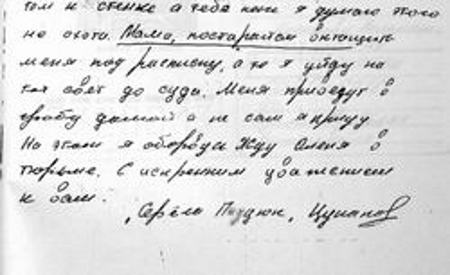 том к стенке а тебе пока я думаю того
не охота. Мама, постарайся вытащить
меня под расписку, а то я уйду на
тот свет до суда. Меня привезут в
гробу домой а не сам я приду
На этом я оборвусь Жду Олега в
тюрьме. С искренним уважением
к вам.
Серёга Поздюк,